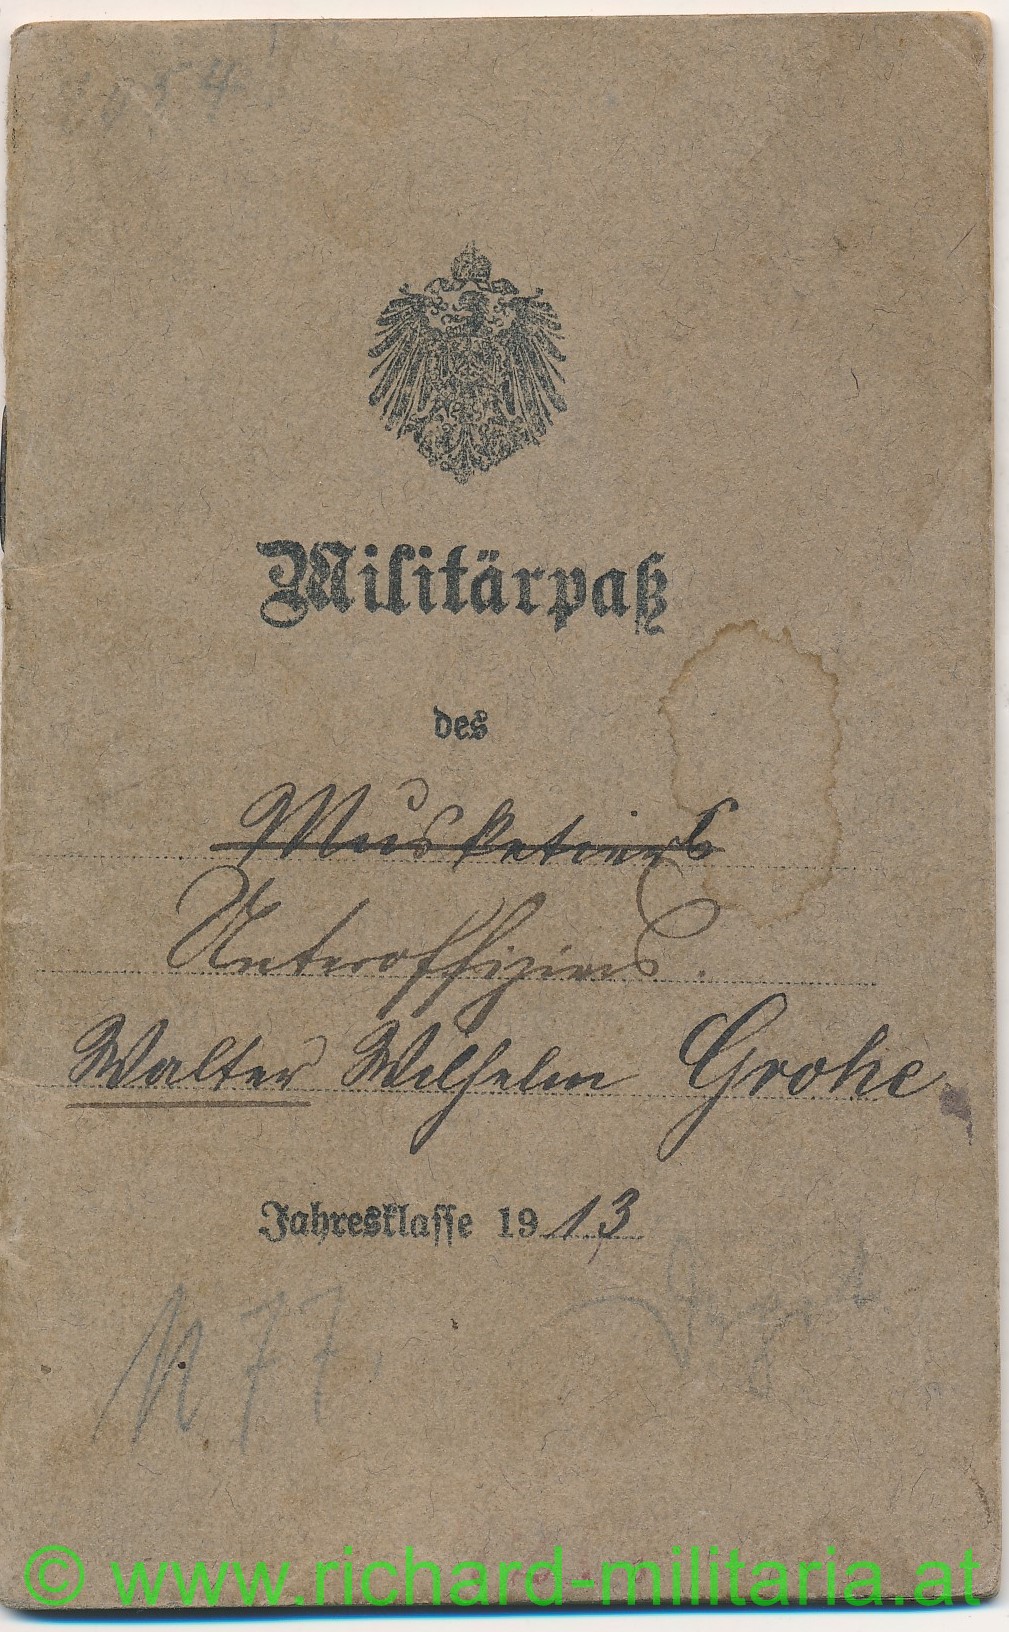 Militärpaß
des
Musketiers
Unteroffiziers.
Walter Wilhelm Grohe
Jahresklasse 1913
77
© www.richard-militaria.at